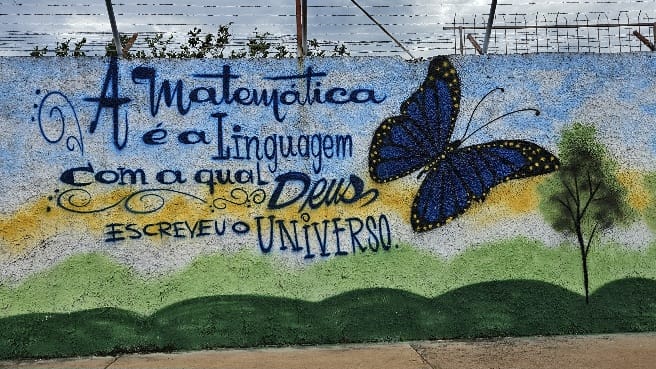 A Matemática
é a Linguagem
com a qual Deus
ESCREVEU O UNIVERSO.